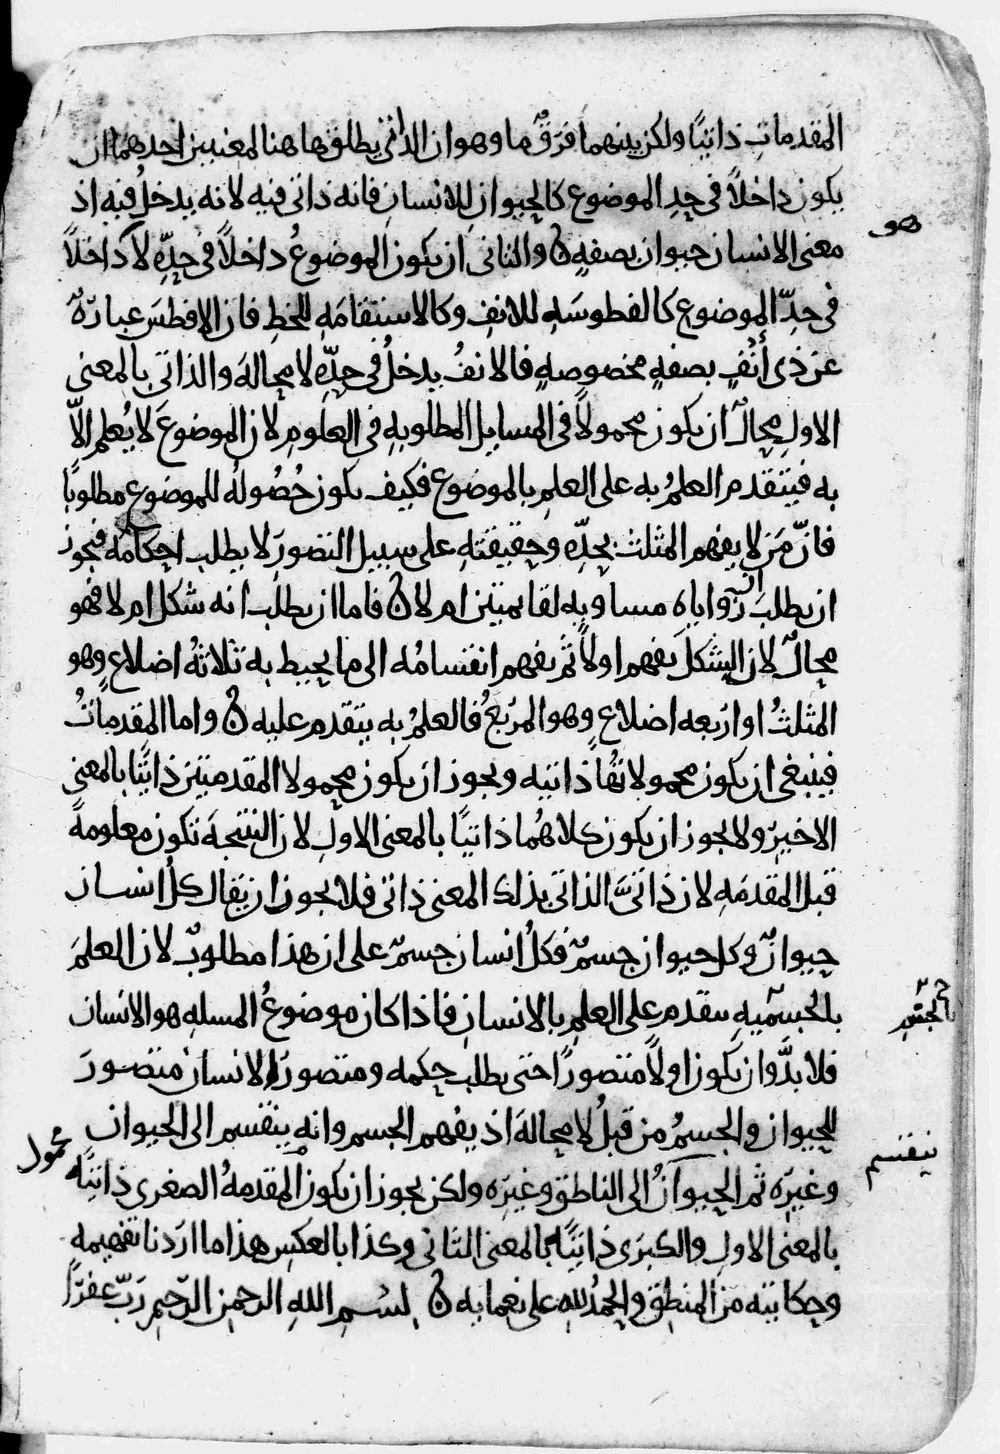 المقدمات ذاتيًا ولكن بينهما فرقٌ ما وهو ان الذاتي يطلق هاهنا لمعنيين احدهما ان
يكون داخلاً في حد الموضوع كالحيوان للانسان فانه ذاتي فيه لانه يدخل فيه اذ
معنى الانسان حيوان بصفةٍ ۞ والثاني ان يكون الموضوعُ داخلاً في حدِّه لا داخلاً
هو
في حدِّ الموضوع كالفطوسَة للانفِ وكالاستقامَةِ للخط فان الافطسَ عبارةٌ
عن ذي أنْفٍ بصفةٍ مخصوصةٍ فالانفُ يدخلُ في حدِّه لا محالةَ والذاتي بالمعنى
الاول محالٌ ان يكون محمولاً في المسايل المطلوبةِ في العلوم لان الموضوعَ لا يُعلم الاّ
به فيتقدم العلمُ به على العلمِ بالموضوع فكيف يكون حُصُولهُ للموضوع مطلوبًا
فانّ مَن لا يفهم المثلث بحدِّه وحقيقتهِ على سبيل التصورِ لا يطلب احكامَه فيجوز
ان يطلبَ ان زواياه مساويةٍ لقايمتين ام لا ۞ فاما ان يطلب انه شكل ام لا فهو
محالٌ لان الشكلَ يفهم اولاً ثم يفهم انقسامُه الى ما يحيط به ثلاثةُ اضلاعٍ وهو
المثلثُ او اربعه اضلاعٍ وهو المربعُ فالعلمُ به يتقدم عليه ۞ واما المقدماتُ
فينبغي ان يكون محمولاتُها ذاتيه ويجوز ان يكون محمولا المقدمتين ذاتيًا بالمعنى
الاخير ولا يجوز ان يكون كلاهُما ذاتيًا بالمعنى الاولِ لان النتيجةَ تكون معلومةً
قبل المقدمَةِ لان ذاتيَّ الذاتي بذلك المعنى ذاتي فلا يجوز ان يقال كلُ انسان
حيوانٌ وكل حيوان جسمٌ فكلُ انسان جسمٌ على ان هذا مطلوبٌ لان العلمَ
بالجسميةِ يتقدم على العلمِ بالانسانِ فاذا كان موضوعُ المسلهِ هو الانسان
بالجسم
فلا بدَّ وان يكون اولاً متصورًا حتى يطلب حكمه ومتصورُ الانسان متصورَ
للحيوان والجسمُ من قبلُ لا محالةَ اذ يفهم الجسم وانه ينقسم الى الحيوان
ينقسم
وغيرِه ثم الحيوانُ الى الناطق وغيرِه ولكن يجوز ان يكون المقدمةُ الصغرى ذاتيَّه
محمول
بالمعنى الاول والكبرَى ذاتيَّه بالمعنى الثاني وكذا بالعكسِ هذا ما اردنا تفهيمه
وحكايته من المنطق والحمدُ للهِ على نعمايه ۞ بسْمِ اللهِ الرحمنِ الرّحيمِ رَبّ